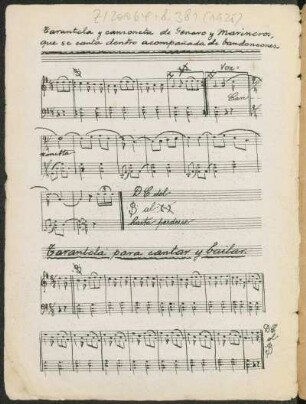 Tarantela y canzoneta de Genaro y Marineros,
que se canta dentro acompañada de bandoneones.
Voz
Can-
zonetta
D.C. del
al
hasta perderse
Tarantela para cantar y bailar.
D.C.
al